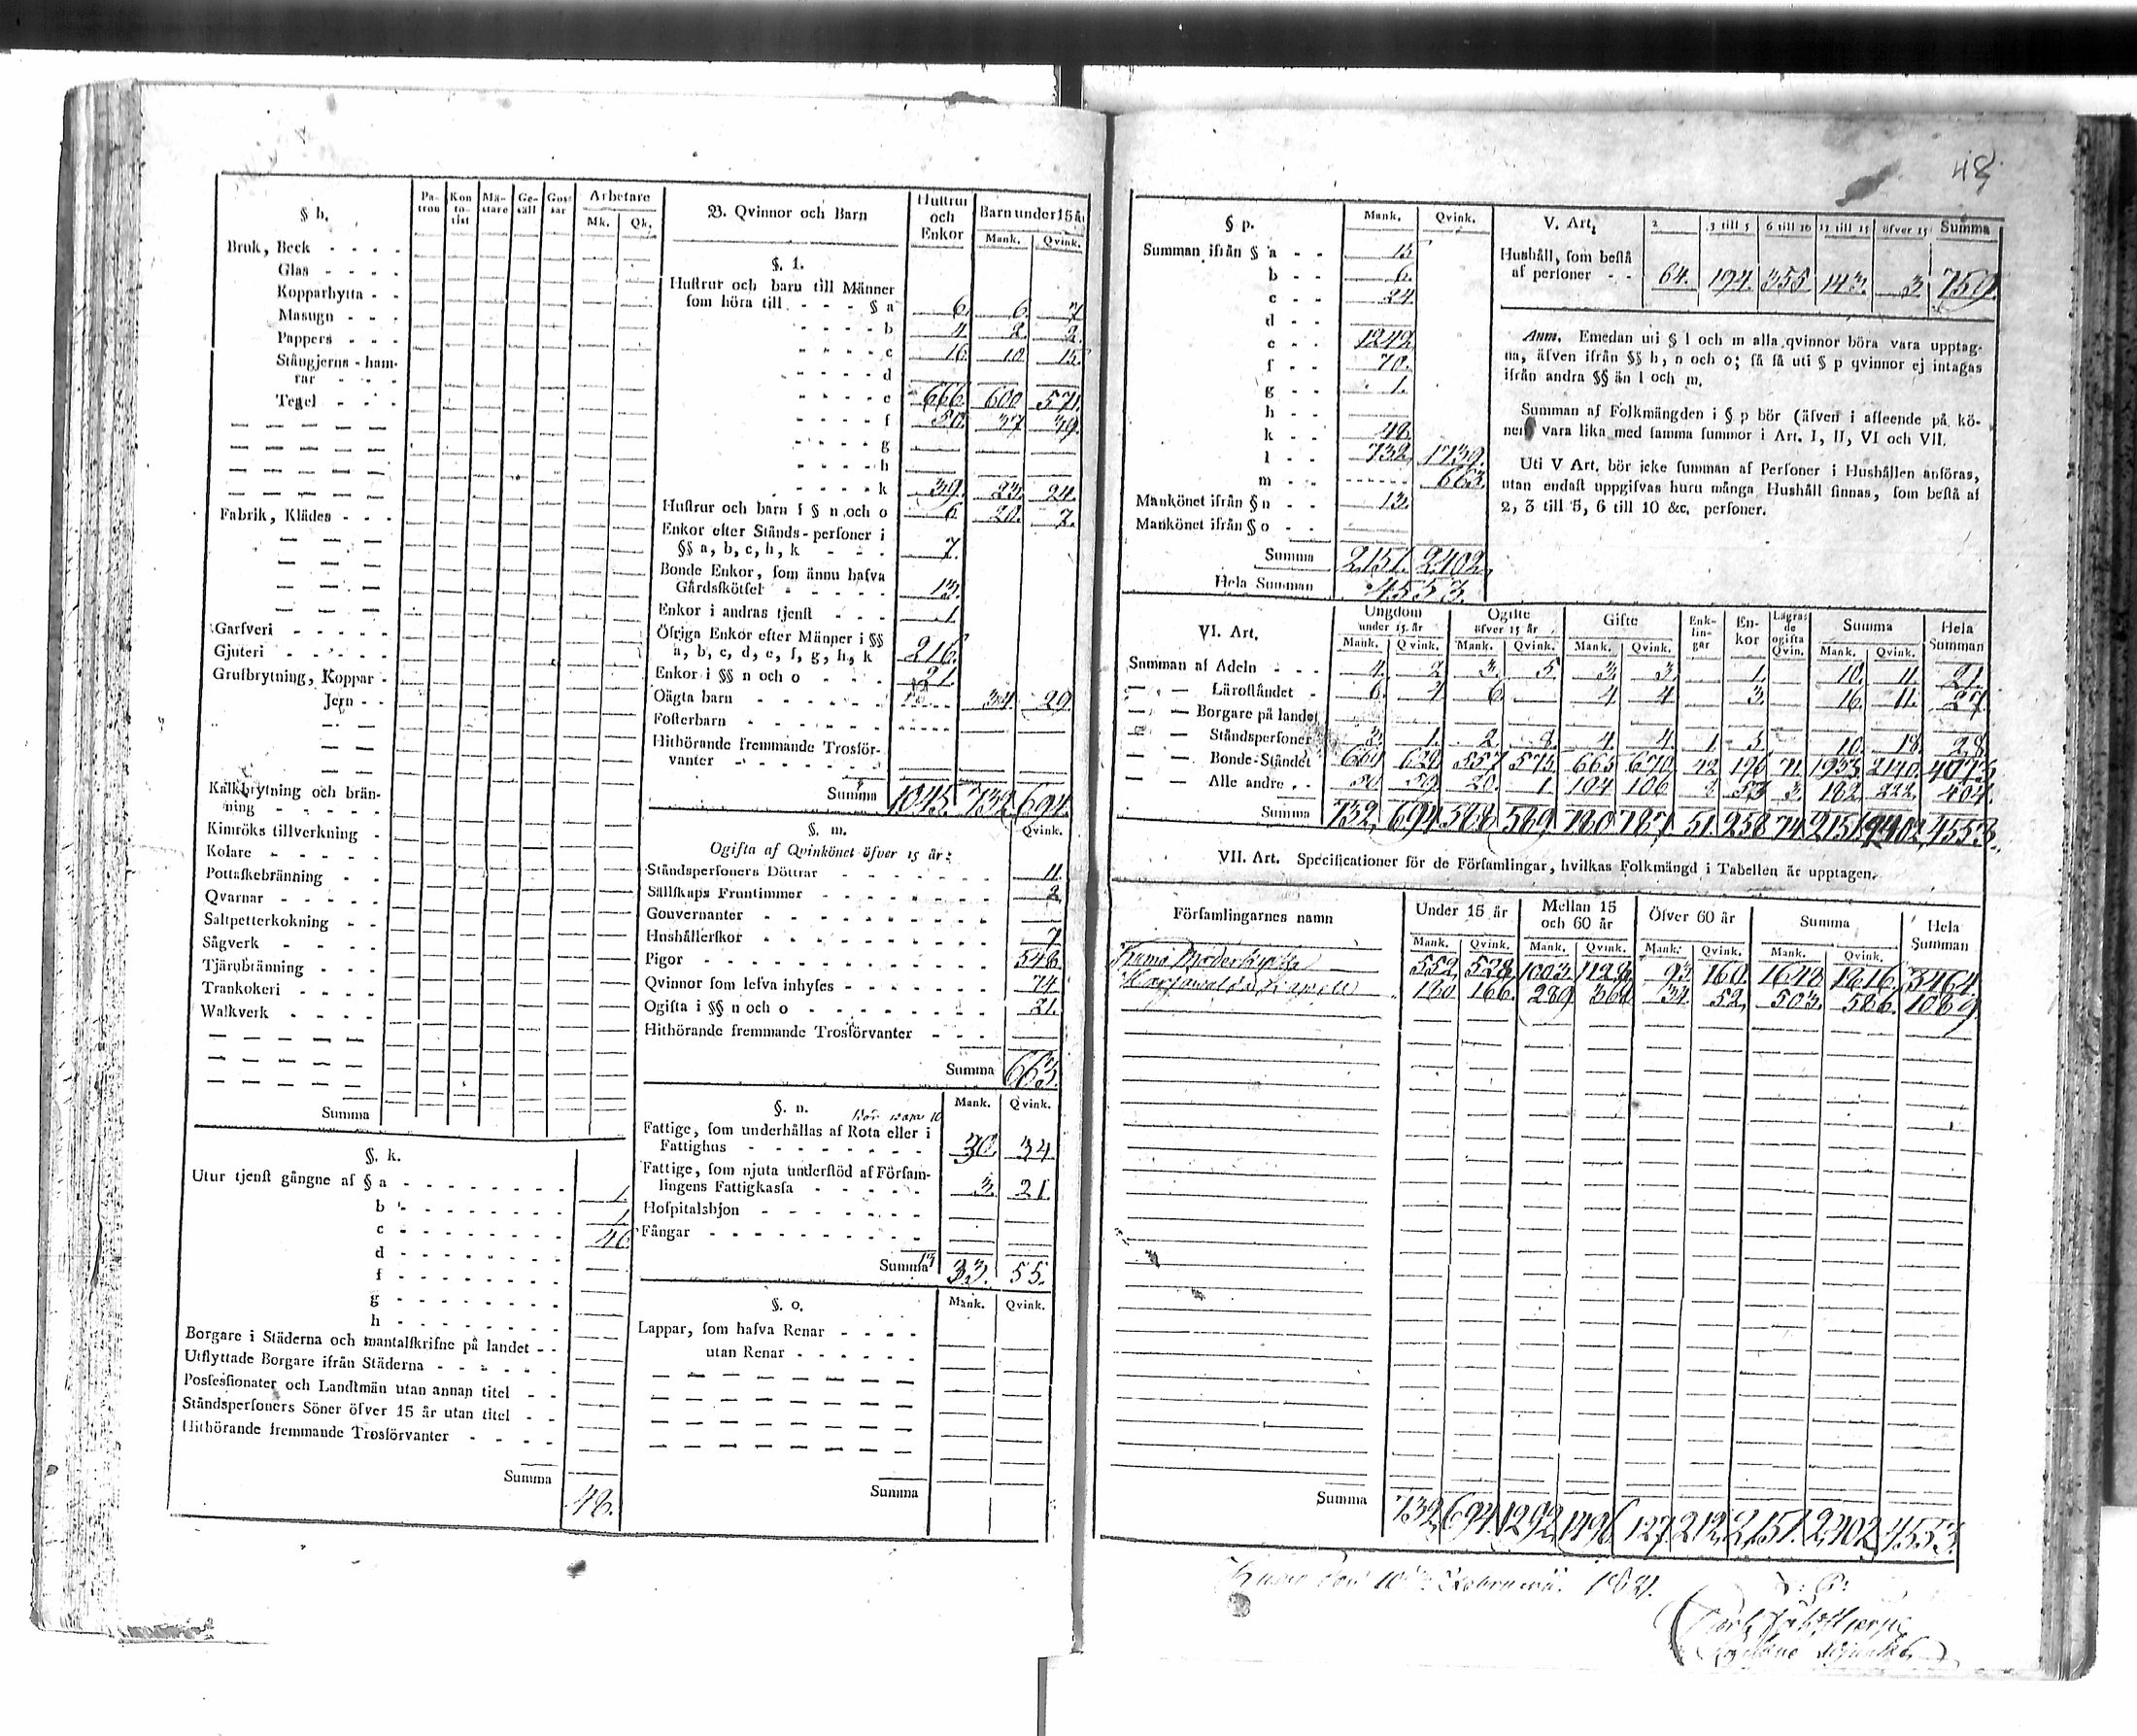 48
§ h. Pa-tron Kon-to-rist Mä-stare Ge-säll Gos-sar Arbetare Mk. Qk.
Bruk, Beck - - - -
Glas - - - -
Kopparhytta - -
Masugn - - -
Pappers - - -
Stångjerns-ham-
rar - - -
Tegel - - -
Fabrik, Klädes - - -
Garfveri - - - - -
Gjuteri - - - - -
Grufbrytning, Koppar -
Jern - -
Kalkbrytning och brän-
ning - - - - -
Kimröks tillverkning -
Kolare - - - - -
Pottaskebränning - -
Qvarnar - - - - -
Saltpetterkokning - -
Sågverk - - - -
Tjärubränning - - -
Trankokeri - - - -
Walkverk - - - -
Summa
§. k.
Utur tjenst gångne af § a - - - - - - - 1.
b - - - - - - - 1.
c - - - - - - - 46
d - - - - - - -
f - - - - - - -
g - - - - - - -
h - - - - - - -
Borgare i Städerna och mantalskrifne på landet - -
Utflyttade Borgare ifrån Städerna - - - - -
Possessionater och Landtmän utan annan titel - -
Ståndspersoners Söner öfver 15 år utan titel - -
Hithörande fremmande Trosförvanter - - - -
Summa 48.
B. Qvinnor och Barn Hustrur och Enkor Barn under 15 år Mank. Qvink.
§. l.
Hustrur och barn till Männer
som höra till - - - § a 6. 6. 7
- - - - b 4. 2. 2.
- - - - c 16. 10 15.
- - - - d
- - - - e 666. 600 571.
- - - - f 50. 37 39.
- - - - g
- - - - h
- - - - k 39. 23. 24.
Hustrur och barn i § n och o 6. 20. 7.
Enkor efter Stånds-personer i
§§ a, b, c, h, k - - - 7.
Bonde Enkor, som ännu hafva
Gårdsskötsel - - - - - 13.
Enkor i andras tjenst - - - 1.
Öfriga Enkor efter Männer i §§
a, b, c, d, e, f, g, h, k 216.
Enkor i §§ n och o - - - 21.
Oägta barn - - - - - - 34. 29.
Fosterbarn - - - - - -
Hithörande fremmande Trosför-
vanter - - - - - -
Summa 1045. 732. 694.
§. m. Qvink.
Ogifta af Qvinkönet öfver 15 år:
Ståndspersoners Döttrar - - - - - - - 11.
Sällskaps Fruntimmer - - - - - - - 2
Gouvernanter - - - - - - - - -
Hushållerskor - - - - - - - - - 7
Pigor - - - - - - - - - - - 548.
Qvinnor som lefva inhyses - - - - - - - 74
Ogifta i §§ n och o - - - - - - - - - 21.
Hithörande fremmande Trosförvanter - - -
Summa 663.
§. n. Mank. Qvink.
Bör vara 10
Fattige, som underhållas af Rota eller i
Fattighus - - - - - - - - 30. 34
Fattige, som njuta understöd af Försam-
lingens Fattigkassa - - - - - 3. 21.
Hospitalshjon - - - - - - -
Fångar - - - - - - - - -
Summa 13 33. 55.
§. o. Mank. Qvink.
Lappar, som hafva Renar - - - -
utan Renar - - - - -
Summa
§ p. Mank. Qvink.
Summan ifrån § a - - 15
b - - 6.
c - - 24
d - -
e - - 1242
f - - 70.
g - - 1.
h - -
k - - 48.
l - - 732 1739.
m - - 663.
Mankönet ifrån § n - - 13.
Mankönet ifrån § o - -
Summa 2151. 2402.
Hela Summan 4553.
V. Art. 2 3 till 5 6 till 10 11 till 15 öfver 15 Summa
Hushåll, som bestå
af personer - - 64. 194. 355 143. 3 759.
Anm. Emedan uti § l och m alla qvinnor böra vara upptag-
na, äfven ifrån §§ h, n och o; så få uti § p qvinnor ej intagas
ifrån andra §§ än l och m.
Summan af Folkmängden i § p bör (äfven i afseende på kö-
nen) vara lika med samma summor i Art. I, II, VI och VII.
Uti V Art. bör icke summan af Personer i Hushållen anföras,
utan endast uppgifvas huru många Hushåll finnas, som bestå af
2, 3 till 5, 6 till 10 &c. personer.
VI. Art. Ungdom under 15 år Ogifte öfver 15 år Gifte Enk-lin-gar En-kor Lägrade ogifta Qvin. Summa Hela Summan
Mank. Qvink. Mank. Qvink. Mank. Qvink. Mank. Qvink.
Summan af Adeln - - - 4. 2 3. 5 3. 3. 1. 10. 11. 21.
— — Läroståndet - 6. 4 6. 4 4 3. 16. 11. 27
— — Borgare på landet
— — Ståndspersoner 3. 1. 2. 4. 4. 1. 3. 10. 18. 28
— — Bonde-Ståndet 629 557 575 665 670 42 71. 1933 2140. 4073
— — Alle andre - - 20. 1. 104 106 2 53 3. 182. 222. 404.
Summa 732. 694 588 589 780 787 51. 258 74. 2151 2402. 4553.
VII. Art. Specificationer för de Församlingar, hvilkas Folkmängd i Tabellen är upptagen.
Församlingarnes namn Under 15 år Mellan 15 och 60 år Öfver 60 år Summa Hela Summan
Mank. Qvink. Mank. Qvink. Mank. Qvink. Mank. Qvink.
Kumo Moderkyrka 552. 528. 1003. 1128. 93. 160. 1648 1816. 3464.
Harjawalda Kapell 180 166. 289 368 34. 52. 503. 586. 1089
Summa 732. 694. 1292. 1496 127. 212. 2,151. 2,402. 4553.
Kumo den 10de Februarii 1831.